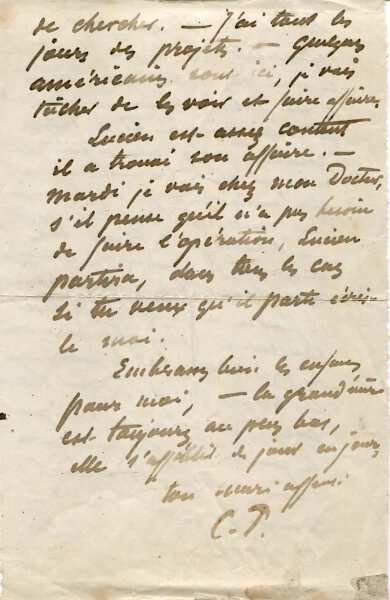 de chercher. — J'ai tous les
jours des projets. — Quelques
américains sont ici, je vais
tâcher de les voir et faire affaires
Lucien est assez content
il a trouvé son affaire. —
Mardi je vais chez mon Docteur,
s'il pense qu'il n'a pas besoin
de faire l'opération, Lucien
partira, dans tous les cas
si tu veux qu'il parte écris-
le moi.
Embrasses bien les enfants
pour moi, — la grand'mère
est toujours au plus bas,
elle s'affaiblit de jour en jour,
ton mari affné.
C. P.